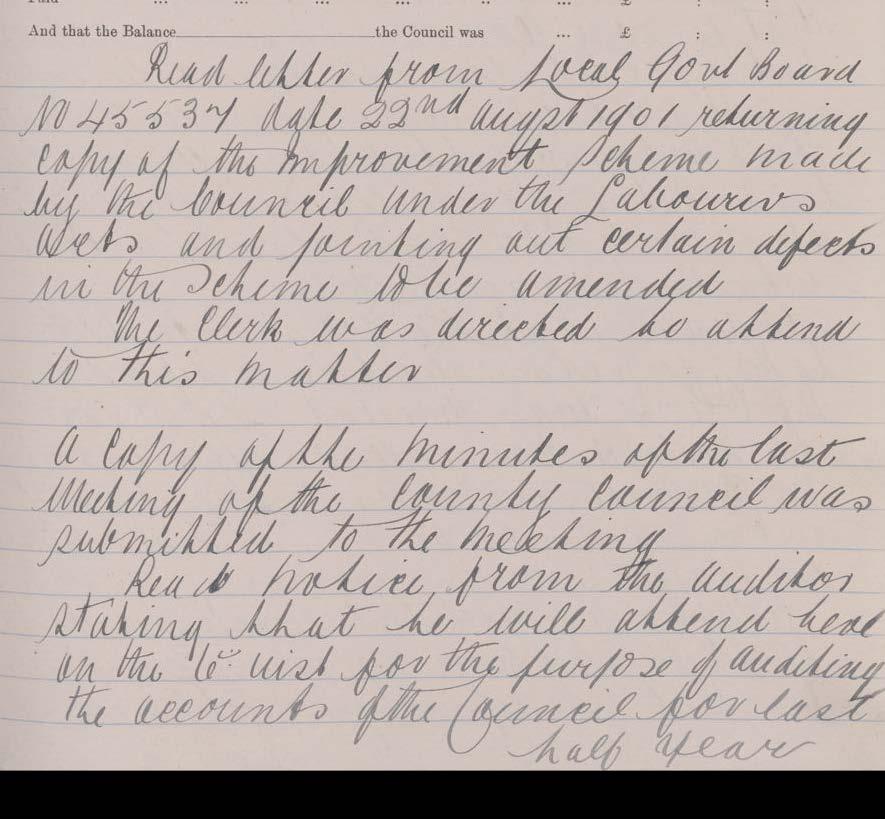 And that the Balance the Council was ... £ : :
Read letter from Local Govt Board
No 45537 date 22nd augst 1901 returning
copy of the improvement scheme made
by the Council under the Labourers
Acts and pointing out certain defects
in the Scheme to be amended
The Clerk was directed to attend
to this matter
A Copy of the minutes of the last
Meeting of the County Council was
submitted to the Meeting
Read notice from the auditor
stating that he will attend here
on the 6th inst for the purpose of auditing
the accounts of the Council for last
half year